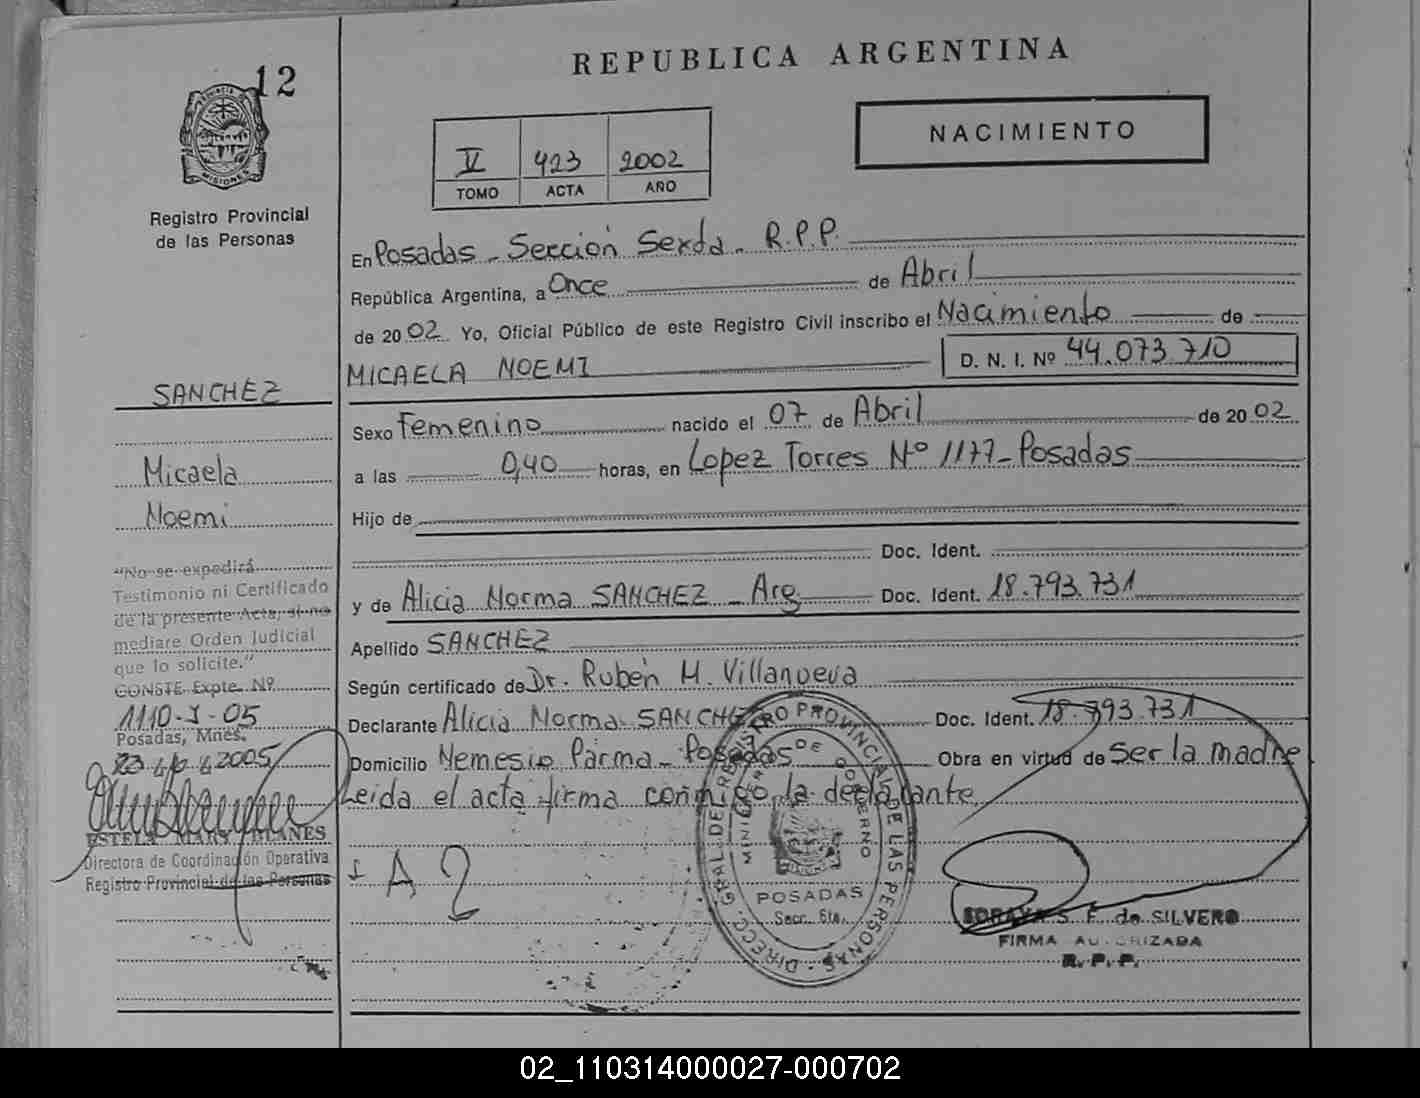 12
REPUBLICA ARGENTINA
PROVINCIA DE
MISIONES
Registro Provincial
de las Personas
V 423 2002
TOMO ACTA AÑO
NACIMIENTO
En Posadas - Sección Sexta - R.P.P.
República Argentina, a Once de Abril
de 2002 Yo, Oficial Público de este Registro Civil inscribo el Nacimiento de
MICAELA NOEMI D. N. I. Nº 44.073.710
Sexo Femenino nacido el 07 de Abril de 2002
a las 0,40 horas, en Lopez Torres Nº 1177 - Posadas
Hijo de
Doc. Ident.
y de Alicia Norma SANCHEZ - Arg Doc. Ident. 18.793.731
Apellido SANCHEZ
Según certificado de Dr. Rubén H. Villanueva
Declarante Alicia Norma SANCHEZ Doc. Ident. 18.793.731
Domicilio Nemesio Parma - Posadas Obra en virtud de Ser la madre
Leida el acta firma conmigo la declarante.
SANCHEZ
Micaela
Noemi
"No se expedirá
Testimonio ni Certificado
de la presente Acta, si no
mediare Orden Judicial
que lo solicite."
CONSTE Expte. Nº
1110-J-05
Posadas, Mnes.
2005
ESTELA MARY BLANES
Directora de Coordinación Operativa
Registro Provincial de las Personas
DIRECC. GRAL. DEL REGISTRO PROVINCIAL DE LAS PERSONAS
MINISTERIO DE GOBIERNO
POSADAS
Secc. 6ta.
SORAYA S. F. de SILVERO
FIRMA AUTORIZADA
R. P. P.
02_110314000027-000702